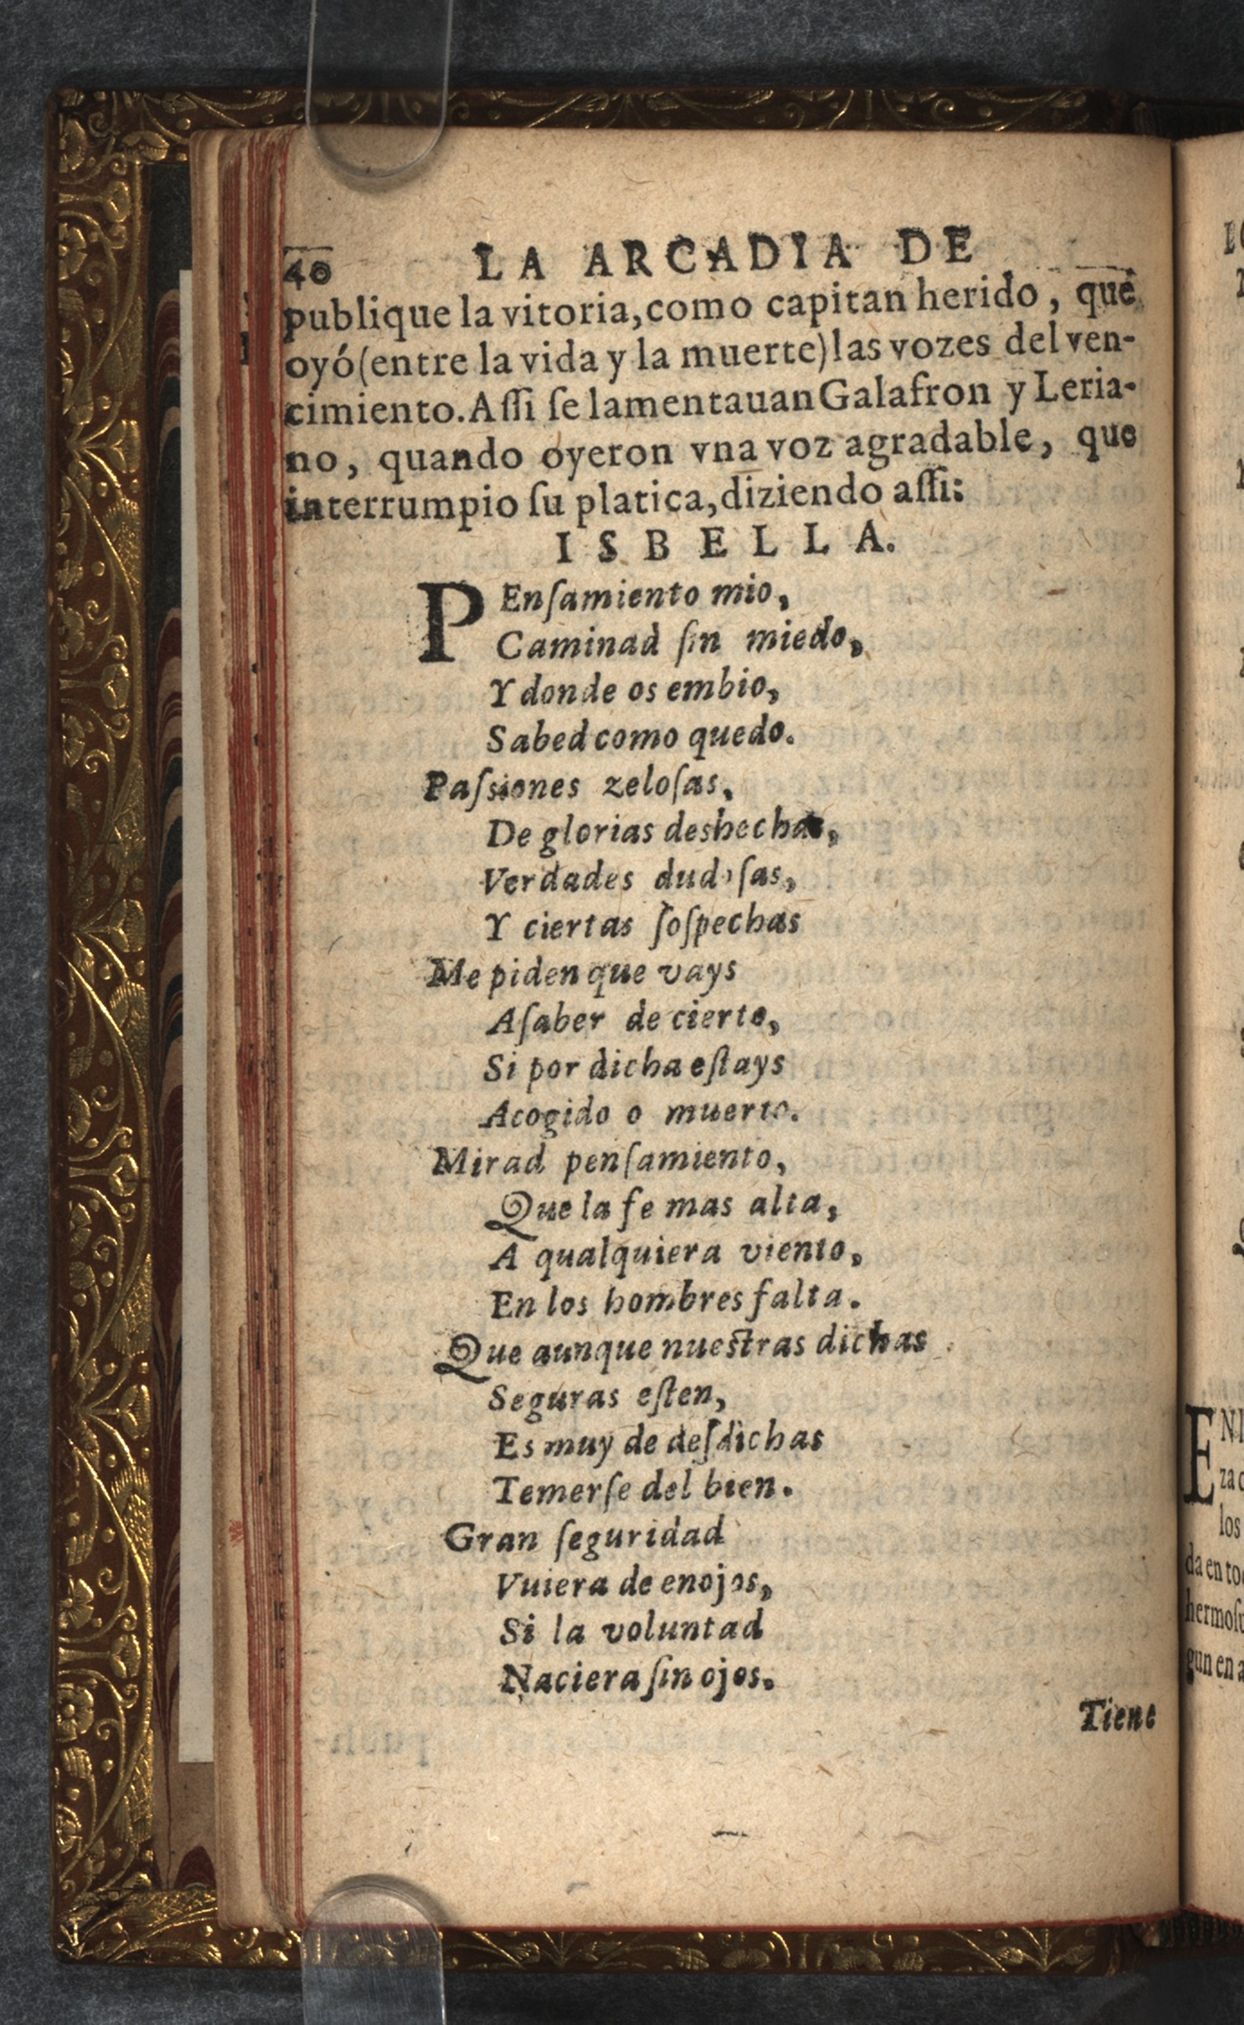 40 LA ARCADIA DE
publique la vitoria, como capitan herido, que
oyó (entre la vida y la muerte) las vozes del ven-
cimiento. Aſſi ſe lamentauan Galafron y Leria-
no, quando oyeron vna voz agradable, que
interrumpio ſu platica, diziendo aſſi:
ISBELLA.
PEnſamiento mio,
Caminad ſin miedo,
Y donde os embio,
Sabed como quedo.
Paſsiones zeloſas,
De glorias deshechas,
Verdades dudoſas,
Y ciertas ſoſpechas
Me piden que vays
A ſaber de cierto,
Si por dicha eſtays
Acogido o muerto.
Mirad penſamiento,
Que la fe mas alta,
A qualquiera viento,
En los hombres falta.
Que aunque nueſtras dichas
Seguras eſten,
Es muy de deſdichas
Temerſe del bien.
Gran ſeguridad
Vuiera de enojos,
Si la voluntad
Naciera ſin ojos.
Tiene
ENl
za
los
da en to
hermoſ
gun en a